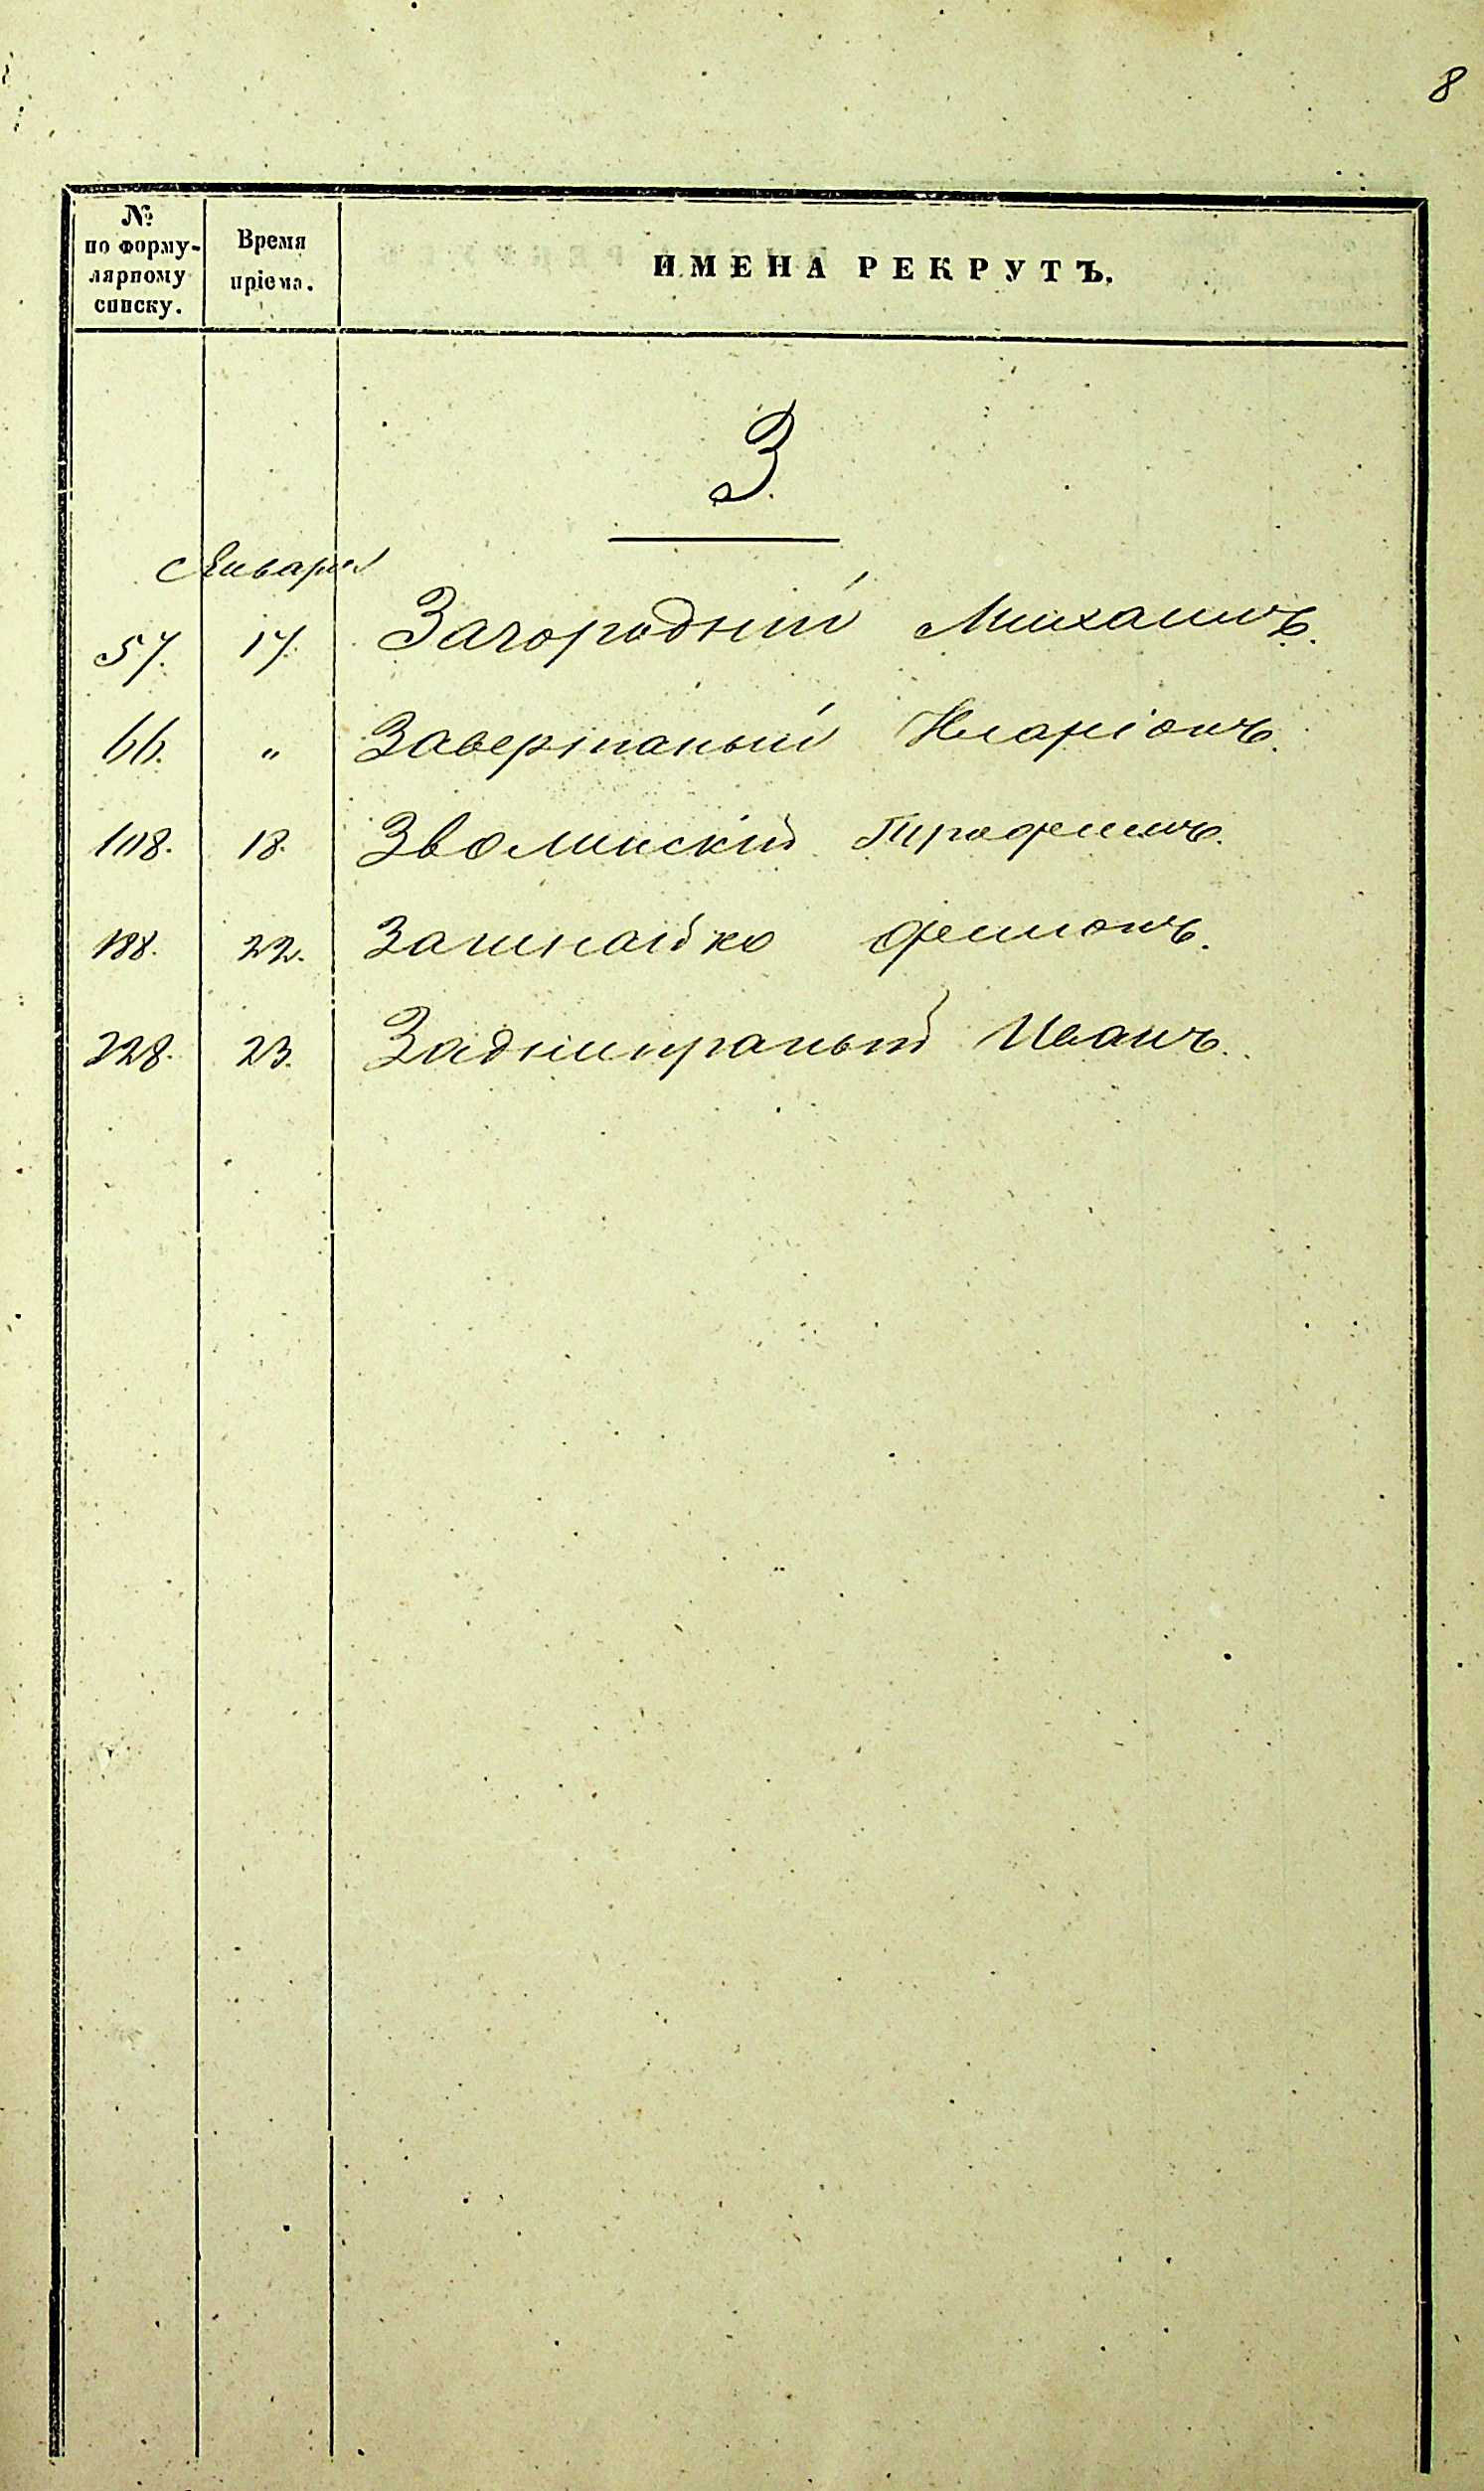 8
№ по форму-лярному списку. Время пріема. ИМЕНА РЕКРУТЪ.
З.
Января
57. 17. Загородній Михаилъ.
66. " Завертаный Иларіонъ.
108. 18. Зволинскій Трофимъ.
188. 22. Филимонъ.
228. 23. Заднипраный Иванъ.